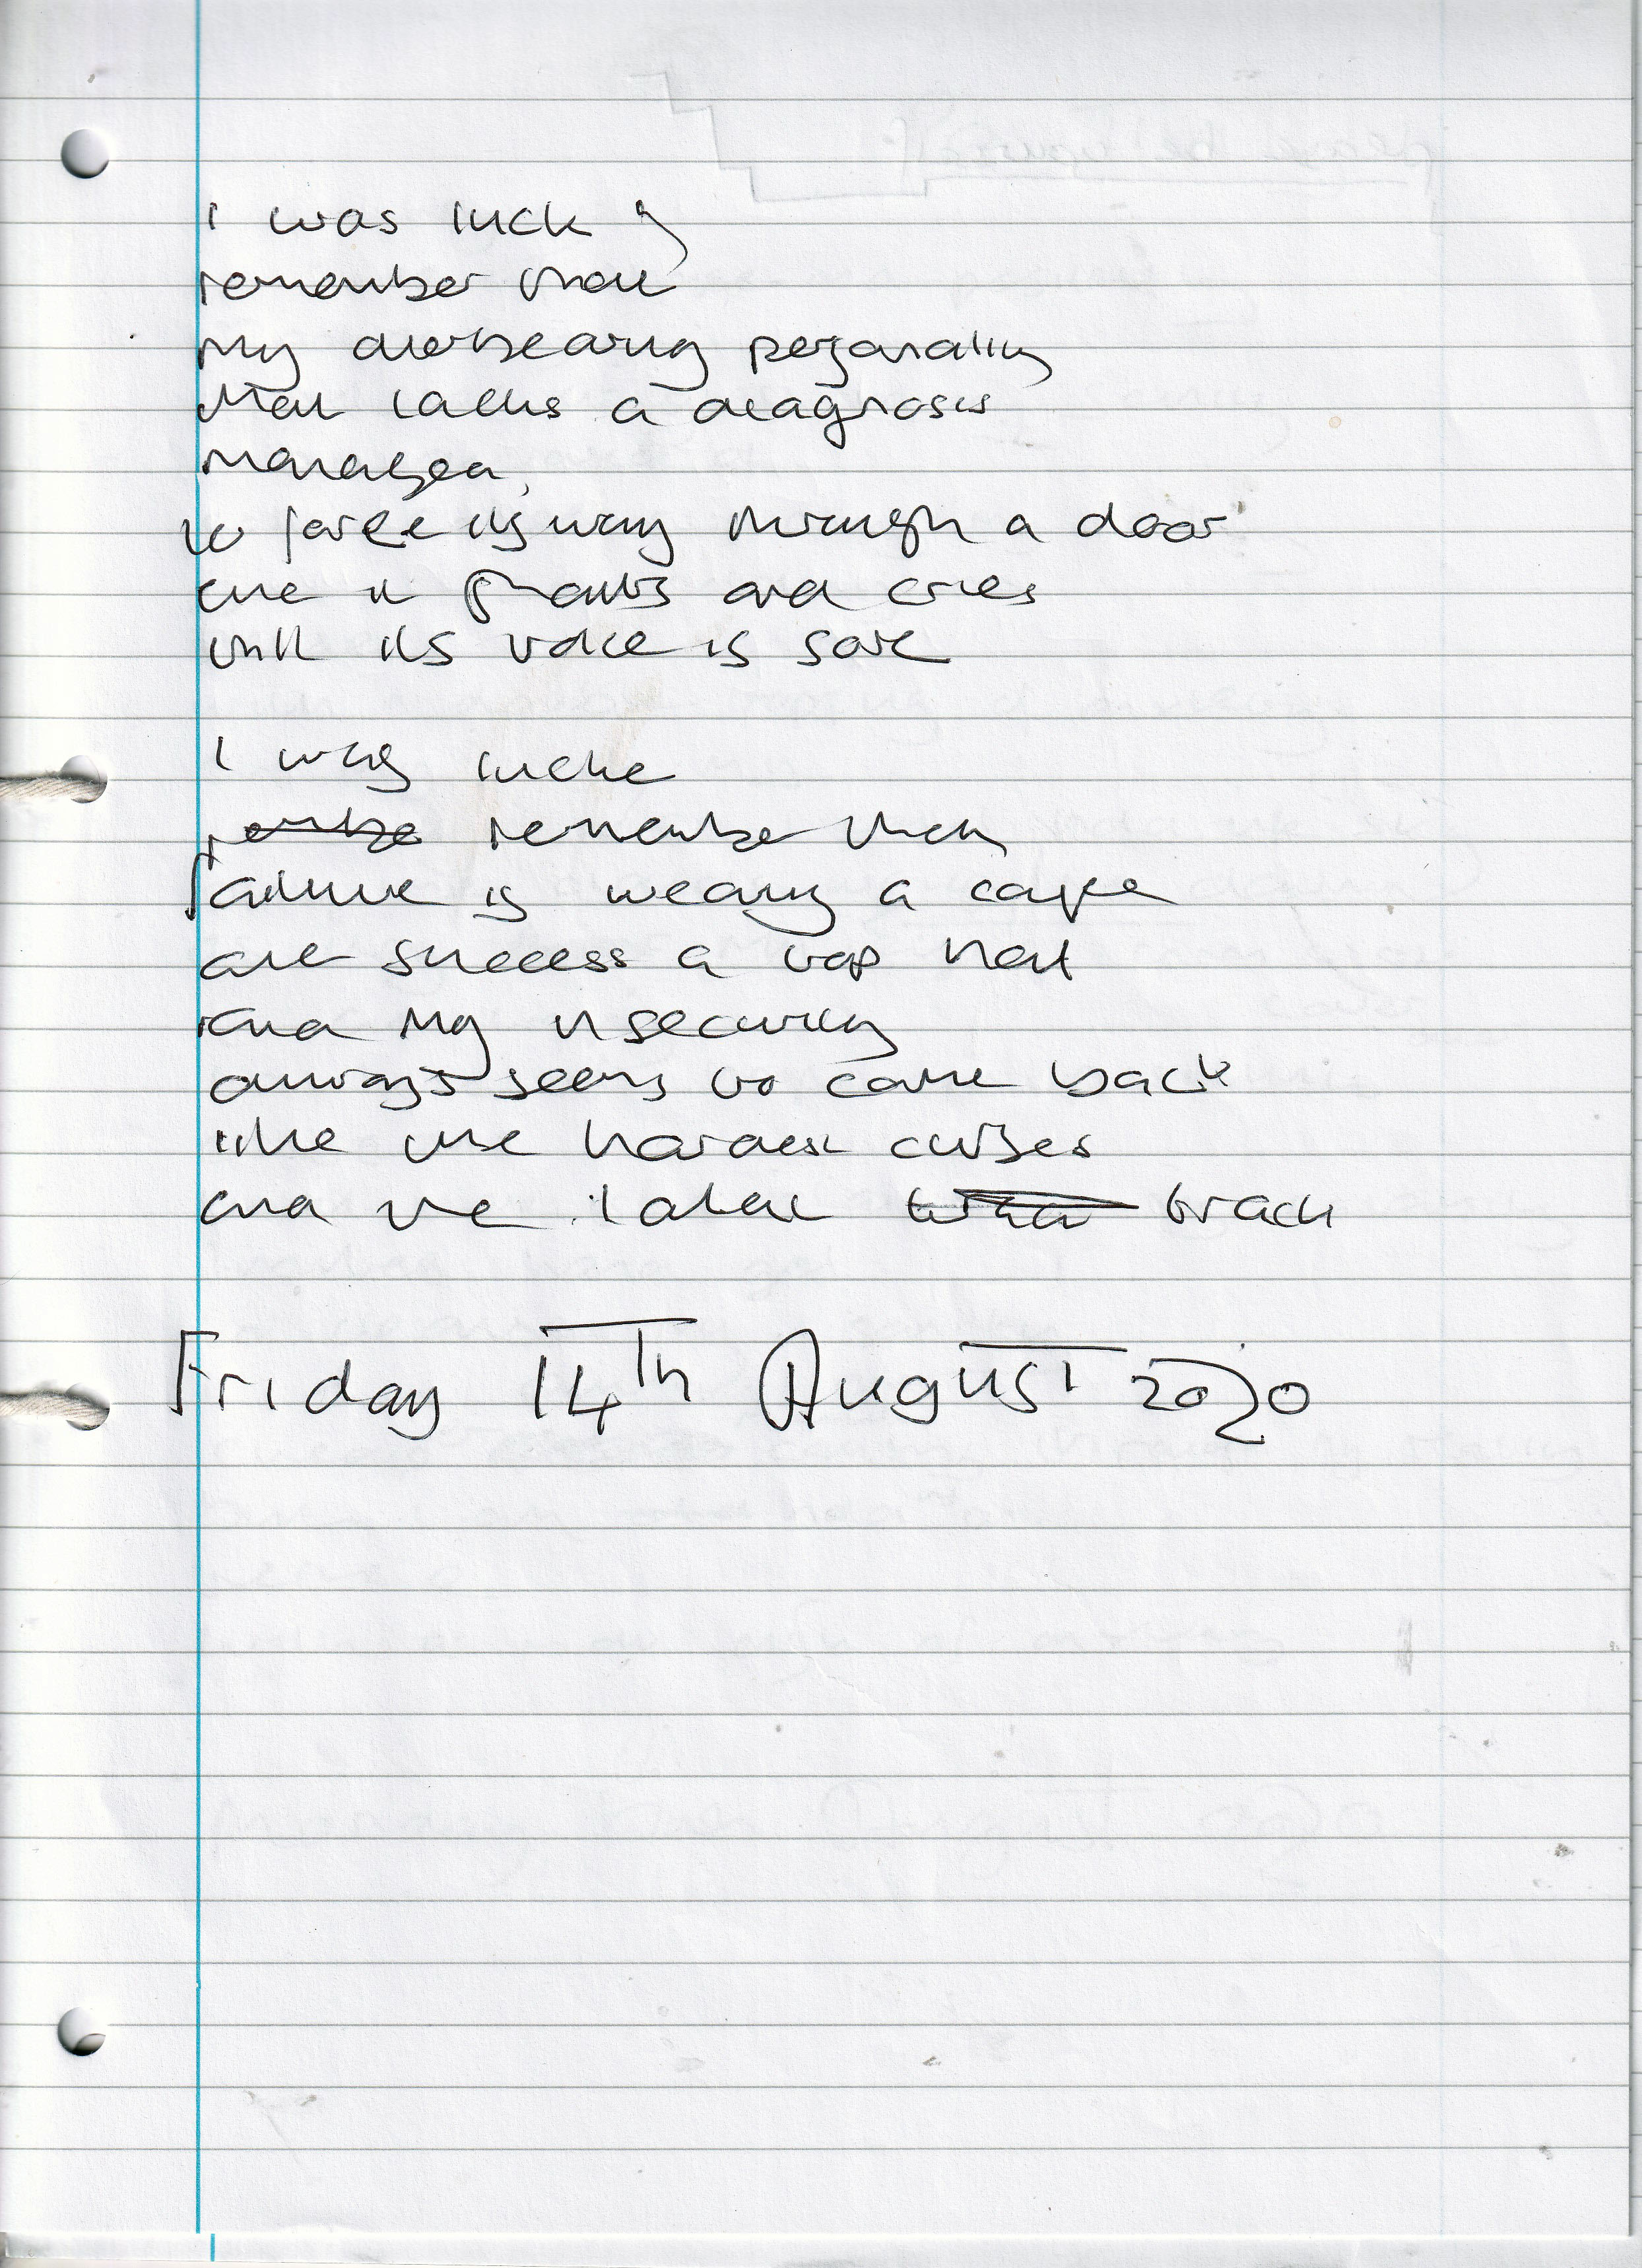 I was lucky
remember that
my overbearing personality
that lacks a diagnosis
managed
to force its way through a door
and it and cries
until its voice is sore
I was
remember that
failure is wearing a cape
and success a top hat
and my insecurity
always seems to come back
like the hardest curses
and track
Friday 14Th August 2020